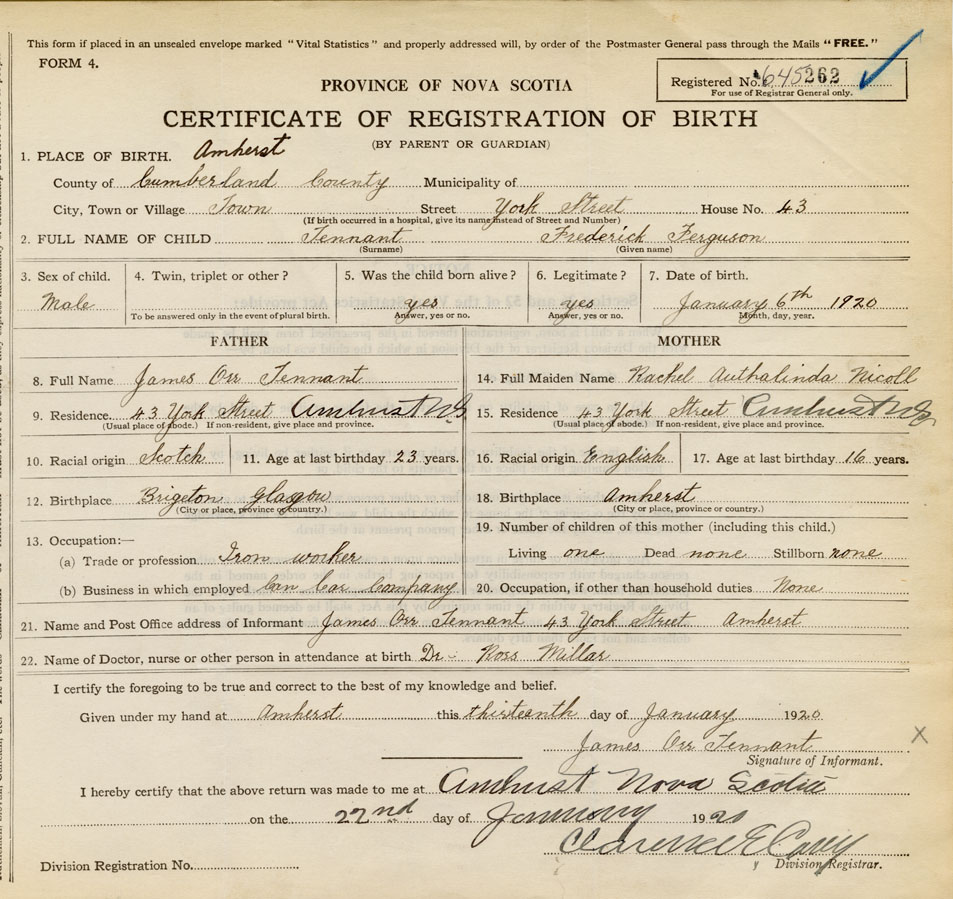 This form if placed in an unsealed envelope marked "Vital Statistics" and properly addressed will, by order of the Postmaster General pass through the Mails "FREE."
FORM 4.
Registered No. 645262
For use of Registrar General only.
PROVINCE OF NOVA SCOTIA
CERTIFICATE OF REGISTRATION OF BIRTH
(BY PARENT OR GUARDIAN)
1. PLACE OF BIRTH. Amherst
County of Cumberland County Municipality of
City, Town or Village Town Street York Street House No. 43
(If birth occurred in a hospital, give its name instead of Street and Number)
2. FULL NAME OF CHILD Tennant Frederick Ferguson
(Surname) (Given name)
3. Sex of child. 4. Twin, triplet or other? 5. Was the child born alive? 6. Legitimate? 7. Date of birth.
Male yes yes January 6th 1920
To be answered only in the event of plural birth. Answer, yes or no. Answer, yes or no. Month, day, year.
FATHER MOTHER
8. Full Name James Orr Tennant 14. Full Maiden Name Rachel Authalinda Nicoll
9. Residence. 43 York Street Amherst NS 15. Residence 43 York Street Amherst NS
(Usual place of abode.) If non-resident, give place and province. (Usual place of abode.) If non-resident, give place and province.
10. Racial origin Scotch 11. Age at last birthday 23 years. 16. Racial origin English 17. Age at last birthday 16 years.
12. Birthplace Brigeton Glasgow 18. Birthplace Amherst
(City or place, province or country.) (City or place, province or country.)
19. Number of children of this mother (including this child.)
13. Occupation:—
(a) Trade or profession Iron worker Living one Dead none Stillborn none
(b) Business in which employed Can Car Company 20. Occupation, if other than household duties None
21. Name and Post Office address of Informant James Orr Tennant 43 York Street Amherst
22. Name of Doctor, nurse or other person in attendance at birth Dr. Ross Millar
I certify the foregoing to be true and correct to the best of my knowledge and belief.
Given under my hand at Amherst this thirteenth day of January 1920
James Orr Tennant
Signature of Informant.
I hereby certify that the above return was made to me at Amherst Nova Scotia
on the 22nd day of January 1920
Clarence E Casey
Division Registration No. Division Registrar.